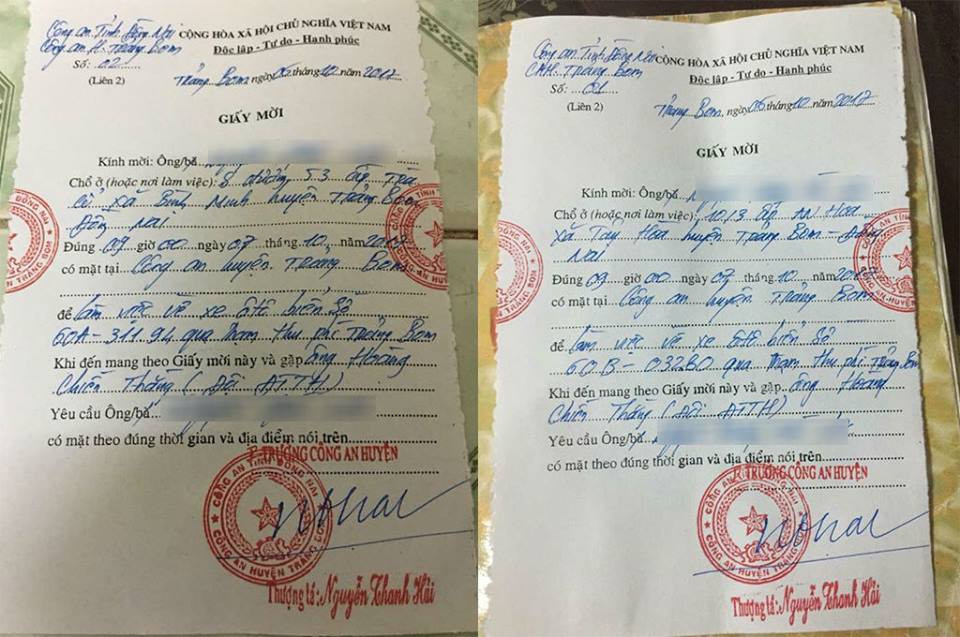 Công an Tỉnh Đồng Nai CỘNG HÒA XÃ HỘI CHỦ NGHĨA VIỆT NAM
Công an H. Trảng Bom Độc lập - Tự do - Hạnh phúc
Số: 02
(Liên 2) Trảng Bom, ngày 06 tháng 10 năm 2017
GIẤY MỜI
Kính mời: Ông/bà
Chỗ ở (hoặc nơi làm việc): 8 đường 53 ấp Trà
Cổ xã Bình Minh huyện Trảng Bom
Đồng Nai
Đúng 09 giờ 00 ngày 07 tháng 10 năm 2017
có mặt tại Công an huyện Trảng Bom
để làm việc về xe ôtô biển số
60A-311.94 qua trạm thu phí Trảng Bom
Khi đến mang theo Giấy mời này và gặp ông Hoàng
Chiến Thắng (Đội ATTH)
Yêu cầu Ông/bà
có mặt theo đúng thời gian và địa điểm nói trên
TRƯỞNG CÔNG AN HUYỆN
CÔNG AN TỈNH ĐỒNG NAI
CÔNG AN HUYỆN TRẢNG BOM
Thượng tá: Nguyễn Thanh Hải
Công an Tỉnh Đồng Nai CỘNG HÒA XÃ HỘI CHỦ NGHĨA VIỆT NAM
CAH. Trảng Bom Độc lập - Tự do - Hạnh phúc
Số: 01
(Liên 2) Trảng Bom, ngày 06 tháng 10 năm 2017
GIẤY MỜI
Kính mời: Ông/bà
Chỗ ở (hoặc nơi làm việc): 10/3 ấp Hoa
xã Tây Hoa huyện Trảng Bom - Đồng
Nai
Đúng 09 giờ 00 ngày 07 tháng 10 năm 2017
có mặt tại Công an huyện Trảng Bom
để làm việc về xe ôtô biển số
60B-03280 qua trạm thu phí Trảng Bom
Khi đến mang theo Giấy mời này và gặp ông Hoàng
Chiến Thắng (Đội ATTH)
Yêu cầu Ông/bà
có mặt theo đúng thời gian và địa điểm nói trên
TRƯỞNG CÔNG AN HUYỆN
CÔNG AN TỈNH ĐỒNG NAI
CÔNG AN HUYỆN TRẢNG BOM
Thượng tá: Nguyễn Thanh Hải